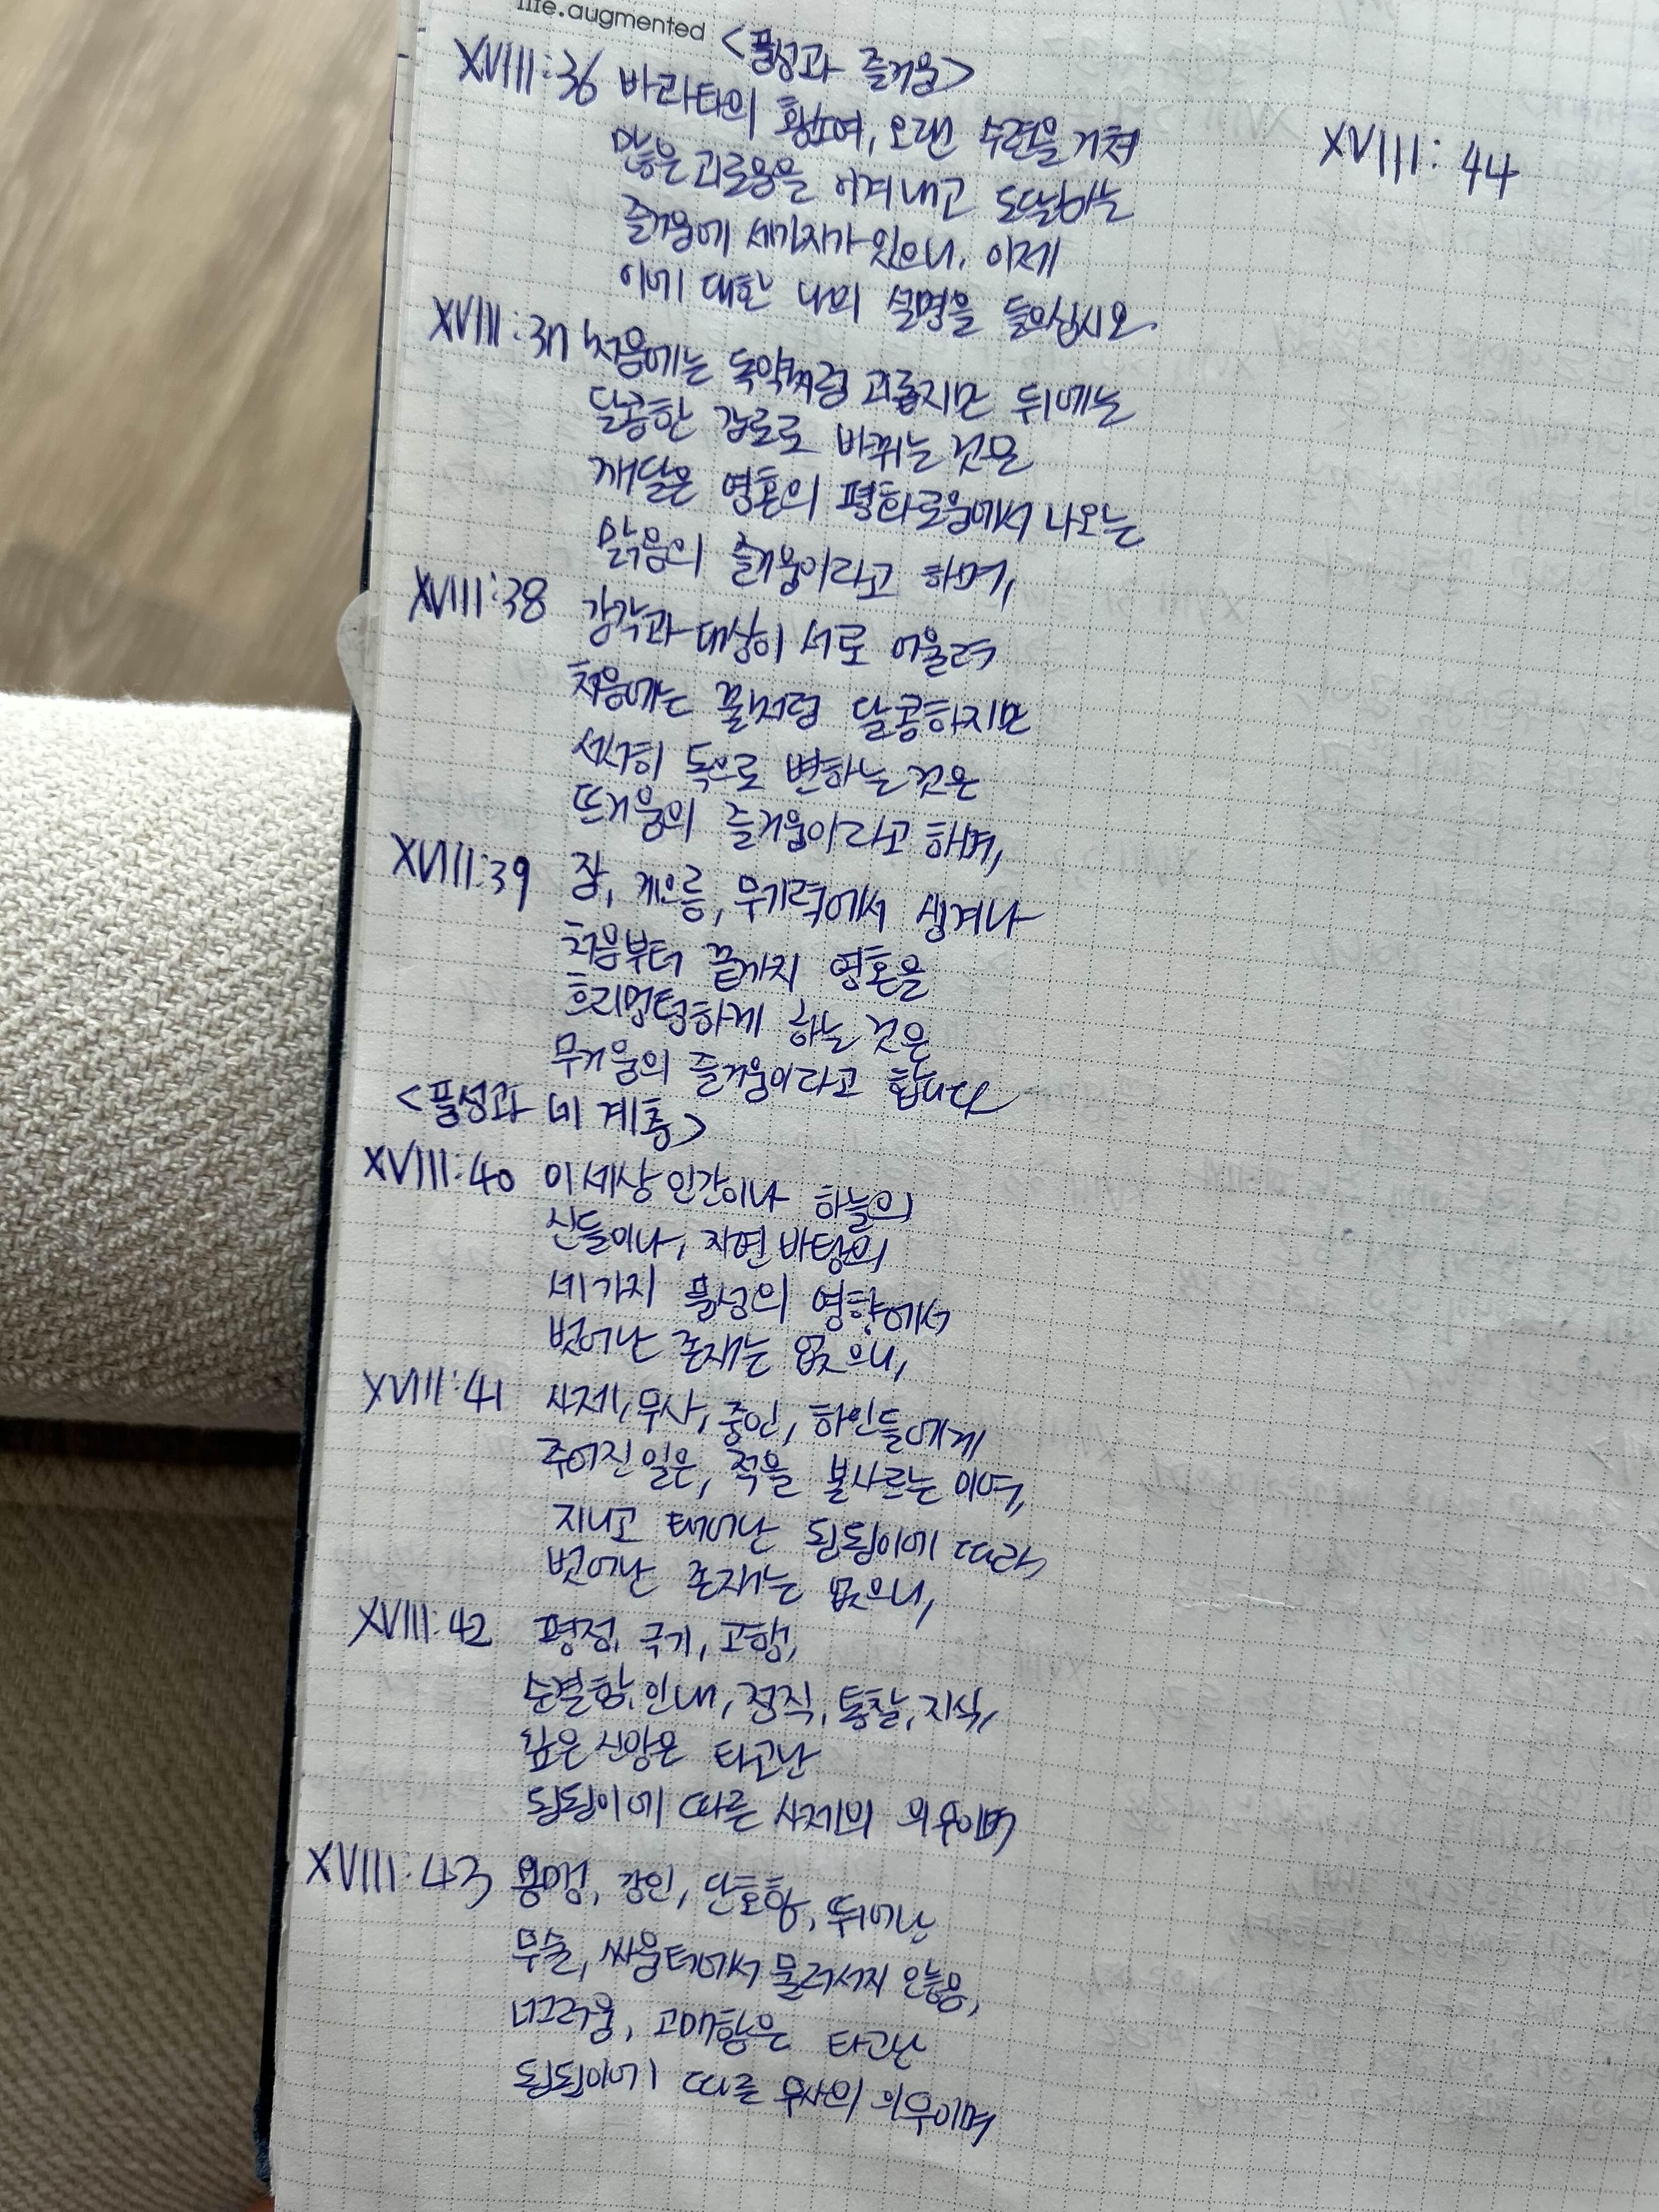 life.augmented
<품성과 즐거움>
XVIII:36 바라타의 황소여, 오랜 수련을 거쳐
많은 괴로움을 이겨내고 도달하는
즐거움에 세가지가 있으니, 이제
이에 대한 나의 설명을 들으십시오.
XVIII:37 처음에는 독약처럼 괴롭지만 뒤에는
달콤한 감로로 바뀌는 것은
깨달은 영혼의 평화로움에서 나오는
맑음의 즐거움이라고 하며,
XVIII:38 감각과 대상이 서로 어울려
처음에는 꿀처럼 달콤하지만
서서히 독으로 변하는 것은
뜨거움의 즐거움이라고 하며,
XVIII:39 잠, 게으름, 무기력에서 생겨나
처음부터 끝까지 영혼을
흐리멍텅하게 하는 것은
무거움의 즐거움이라고 합니다
<품성과 네 계층>
XVIII:40 이 세상 인간이나 하늘의
신들이나, 자연 바탕의
세가지 품성의 영향에서
벗어난 존재는 없으니,
XVIII:41 사제, 무사, 중인, 하인들에게
주어진 일은, 적을 불사르는 이여,
지니고 태어난 됨됨이에 따라
벗어난 존재는 없으니,
XVIII:42 평정, 극기, 고행,
순결함, 인내, 정직, 통찰, 지식,
깊은 신앙은 타고난
됨됨이에 따른 사제의 의무이며
XVIII:43 용맹, 강인, 단호함, 뛰어난
무술, 싸움터에서 물러서지 않음,
너그러움, 고매함은 타고난
됨됨이에 따른 무사의 의무이며
XVIII:44